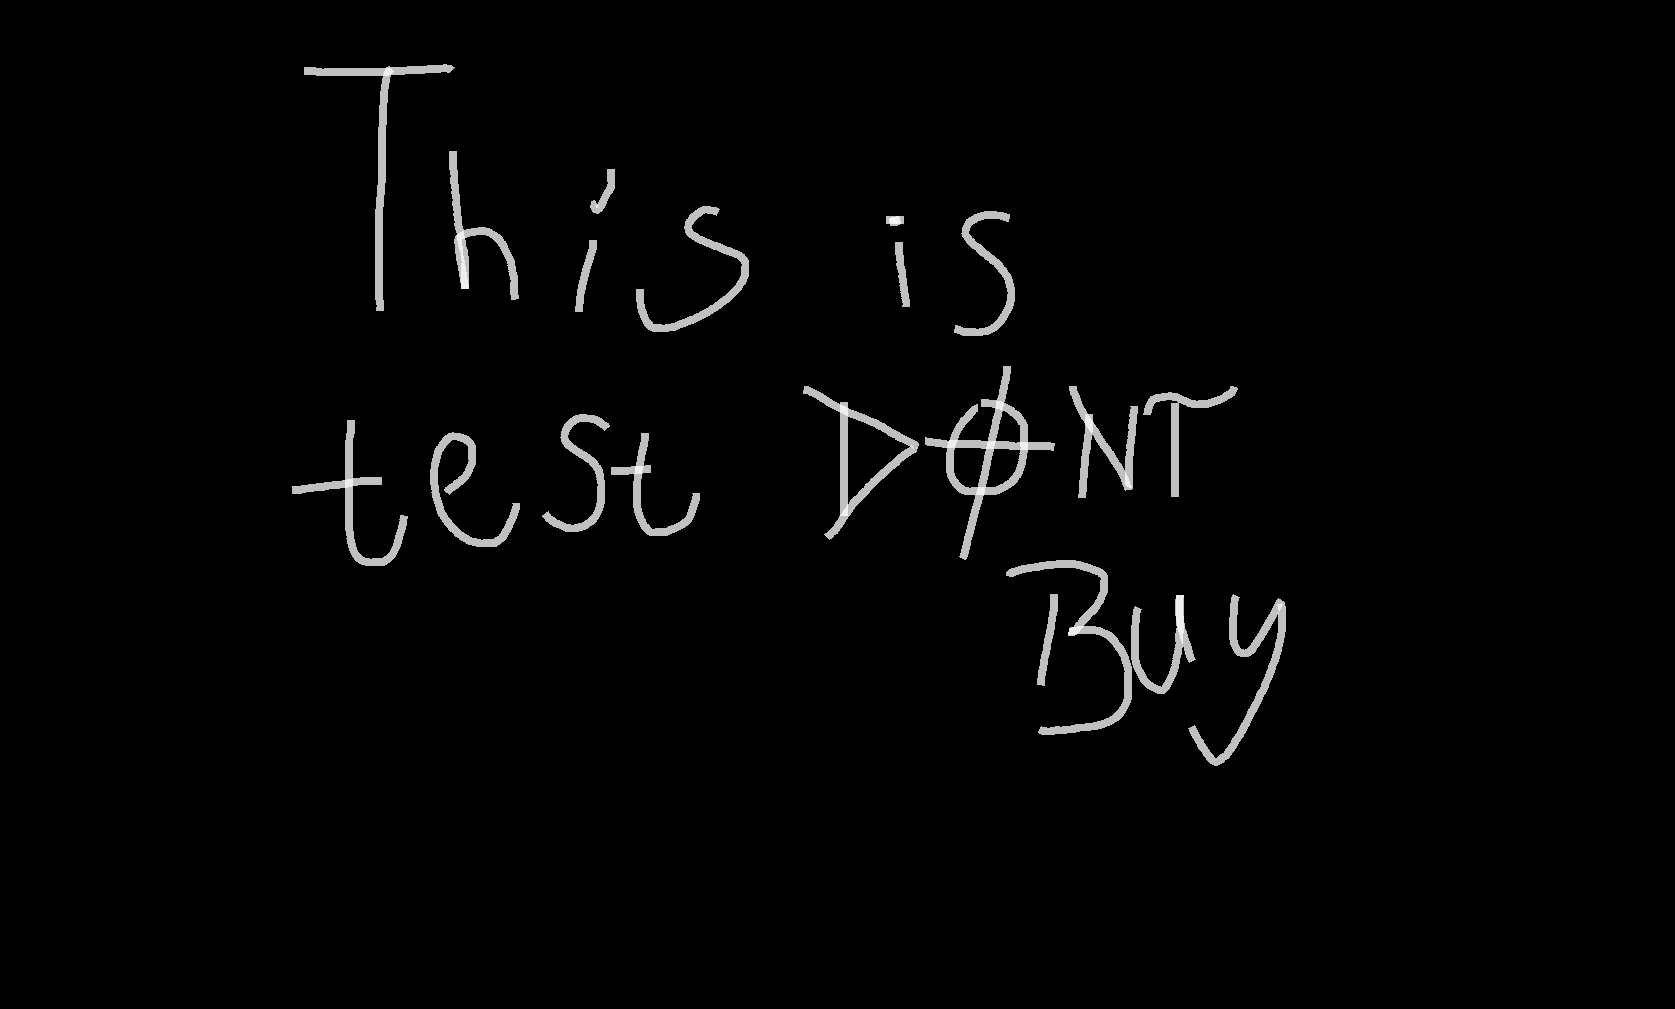 This is
test DONT
Buy